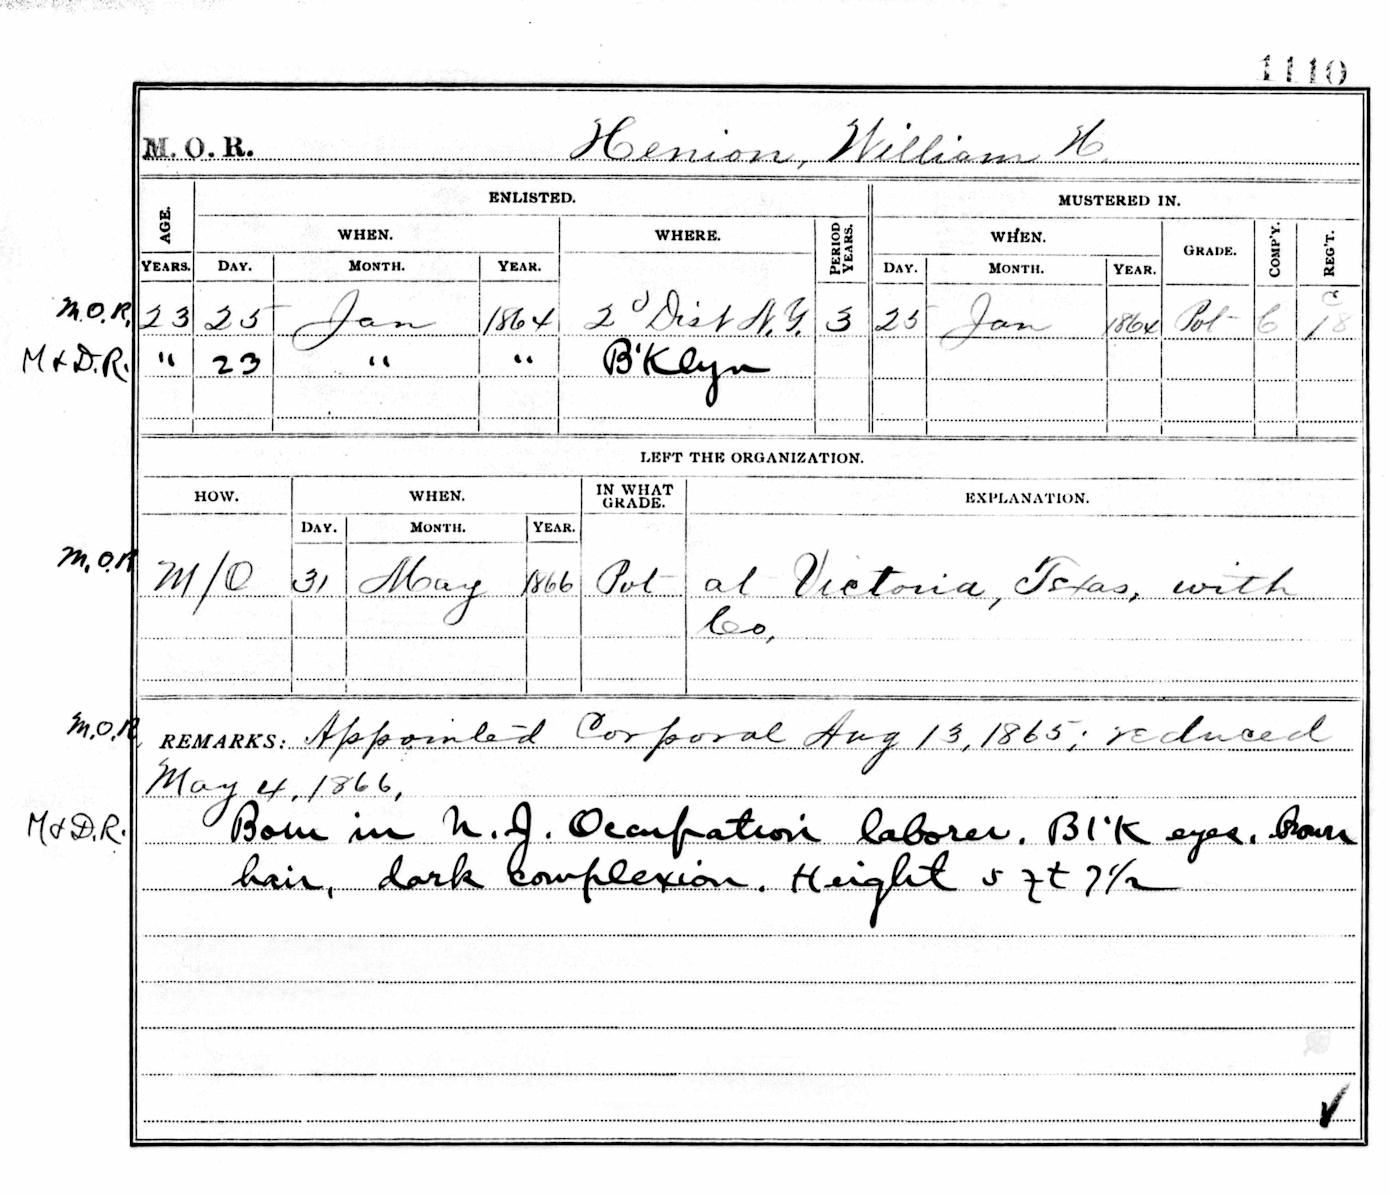 1110
M. O. R. Henion, William H.
ENLISTED. MUSTERED IN.
AGE. WHEN. WHERE. PERIOD YEARS. WHEN. GRADE. COMP'Y. REG'T.
YEARS. DAY. MONTH. YEAR. DAY. MONTH. YEAR.
M.O.R. 23 25 Jan 1864 2d Dist N.Y. 3 25 Jan 1864 Pvt C 18 C
M & D.R. " 23 " " B'Klyn
LEFT THE ORGANIZATION.
HOW. WHEN. IN WHAT GRADE. EXPLANATION.
DAY. MONTH. YEAR.
M.O.R M/O 31 May 1866 Pvt at Victoria, Texas, with
Co,
M.O.R REMARKS: Appointed Corporal Aug 13, 1865; reduced
May 4, 1866,
M & D.R. Born in N.J. Occupation laborer. Bl'k eyes. Brown
hair, dark complexion. Height 5 ft 7 1/2